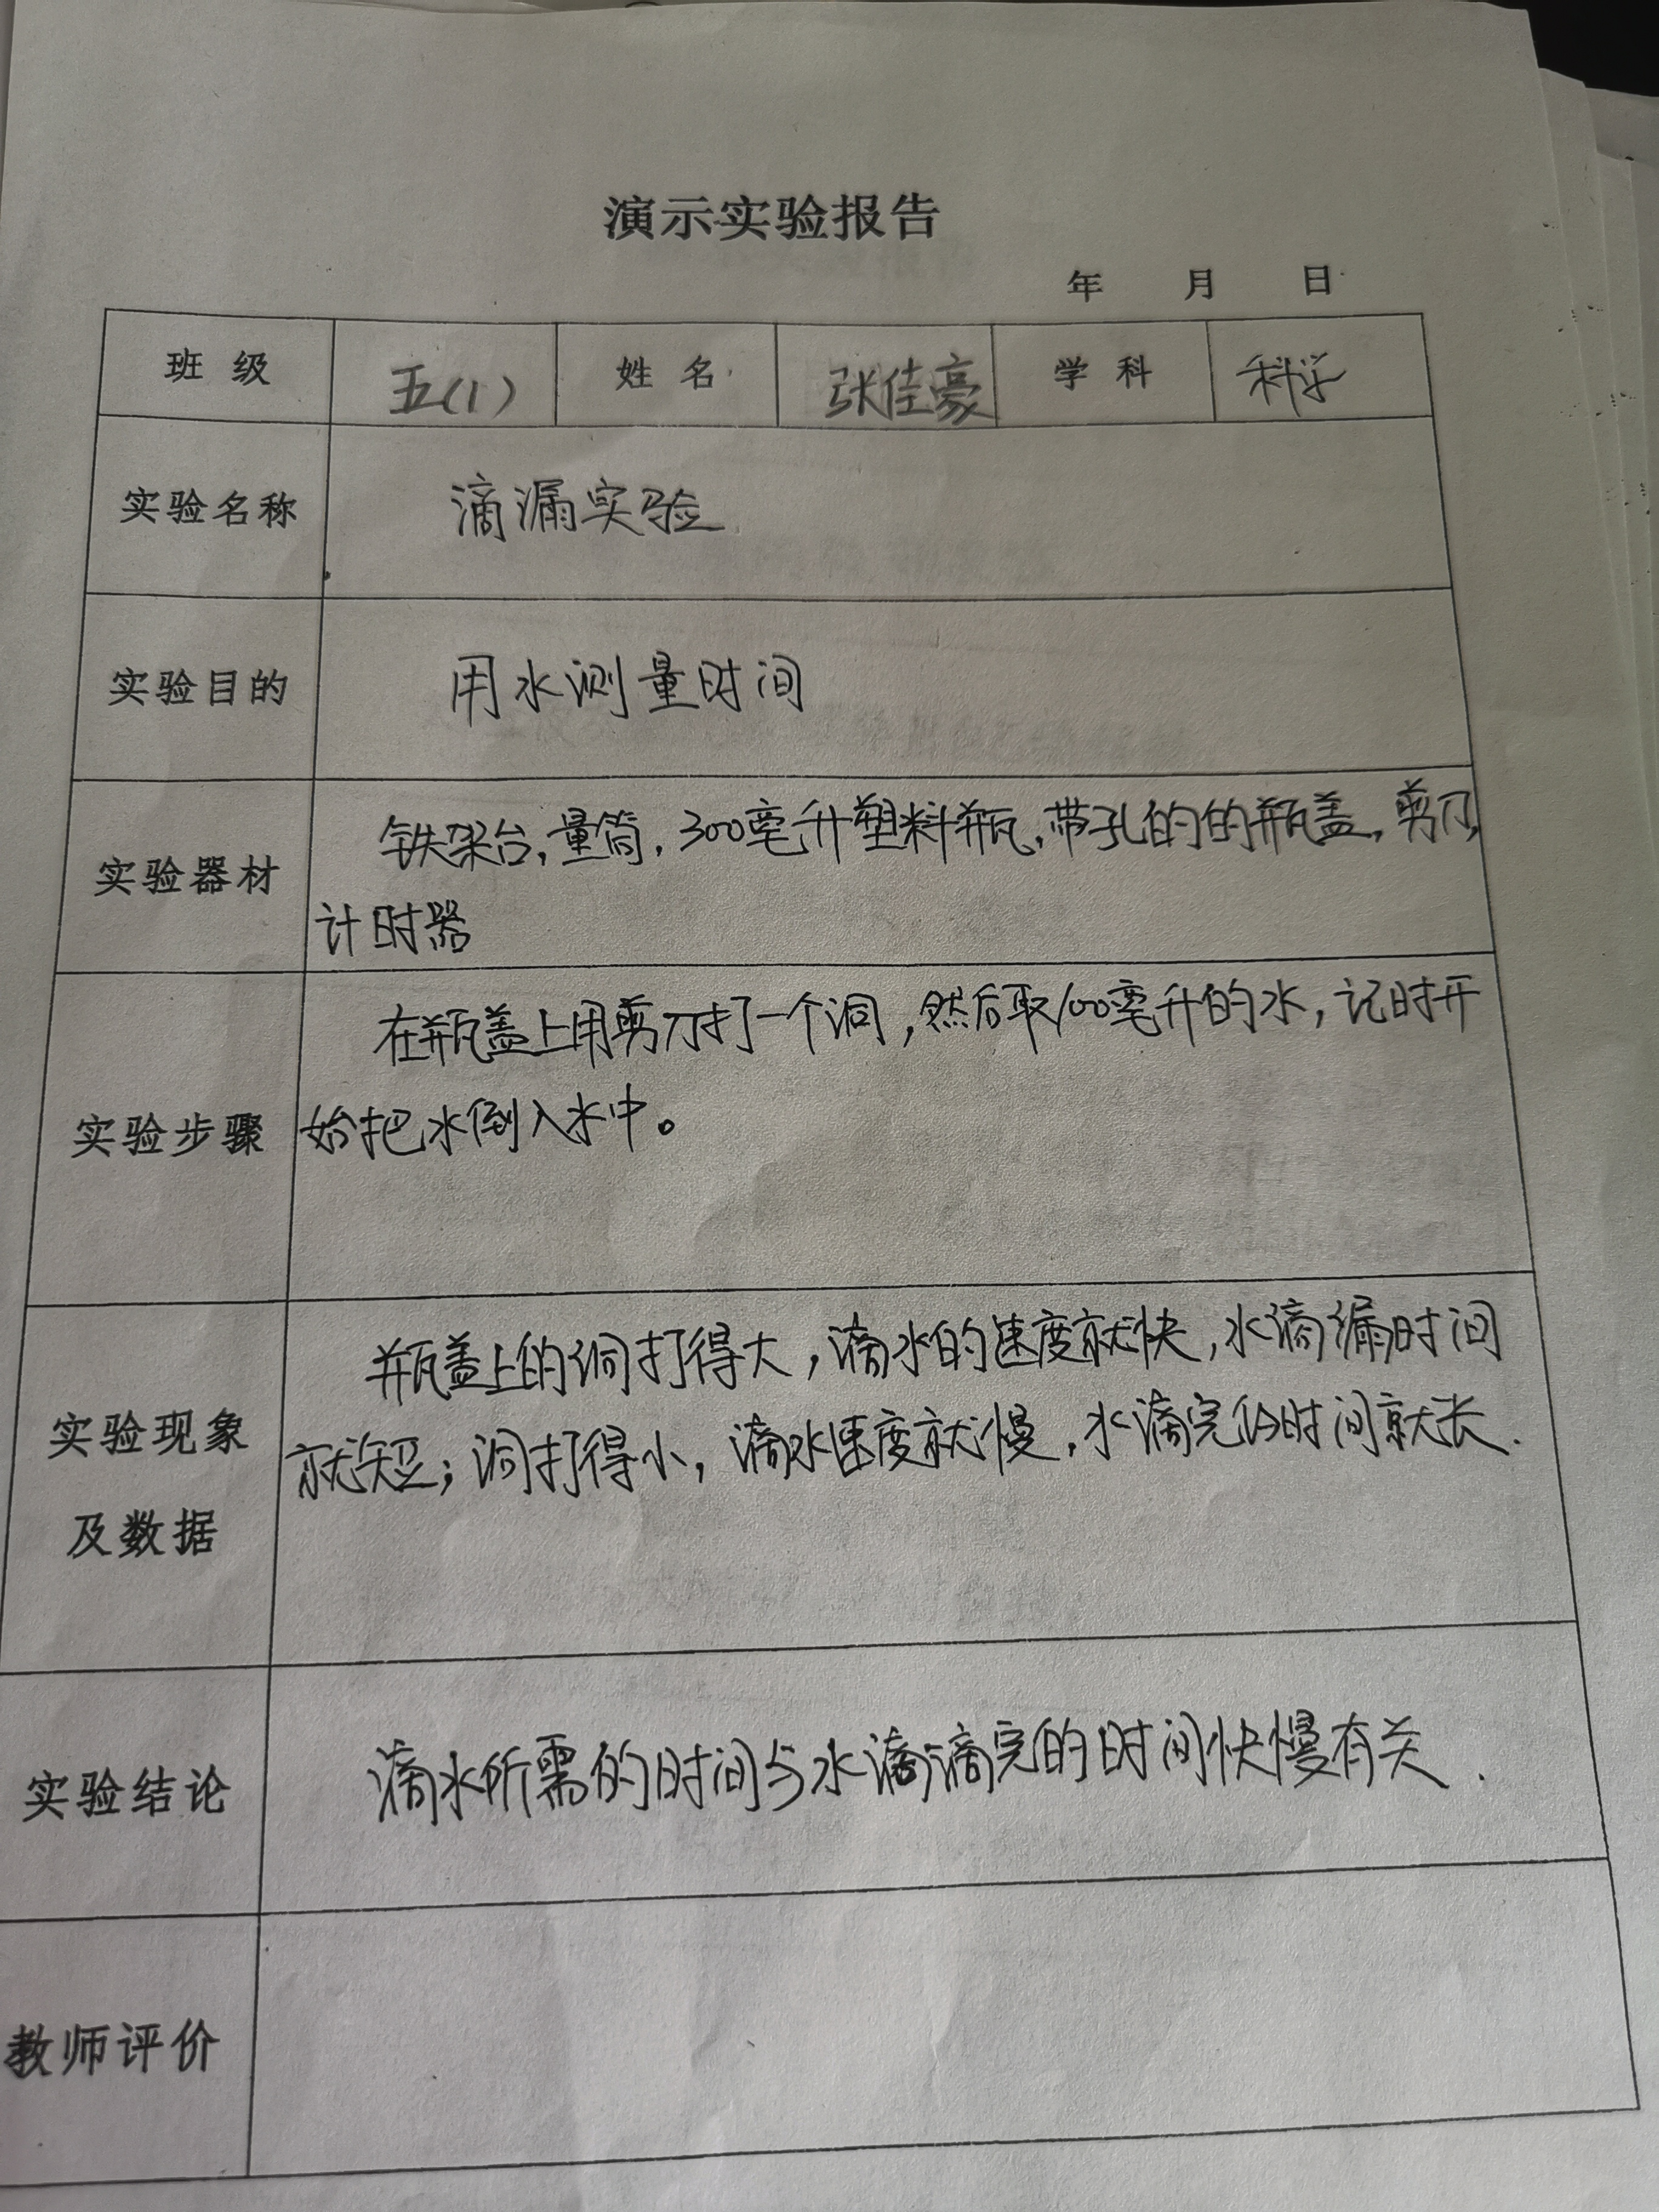 演示实验报告
年 月 日
班级 五(1) 姓名 张佳豪 学科 科学
实验名称 滴漏实验
实验目的 用水测量时间
实验器材 铁架台,量筒,300毫升塑料瓶,带孔的的瓶盖,剪刀,
计时器
实验步骤 在瓶盖上用剪刀打一个洞,然后取100毫升的水,记时开
始把水倒入水中。
实验现象 瓶盖上的洞打得大,滴水的速度就快,水滴漏时间
及数据 就短;洞打得小,滴水速度就慢,水滴完的时间就长.
实验结论 滴水所需的时间与水滴滴完的时间快慢有关.
教师评价